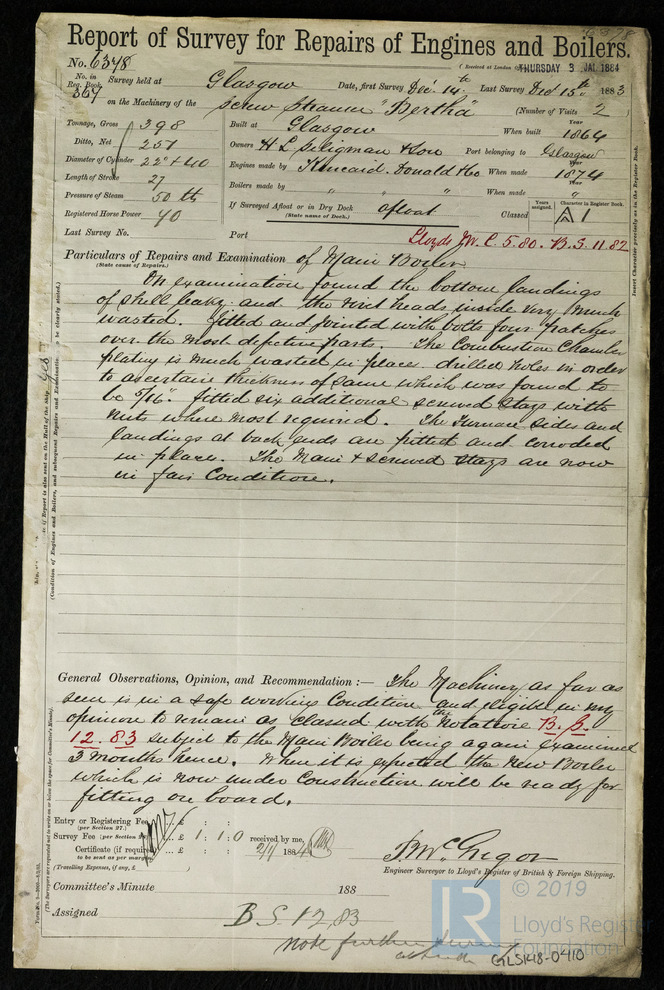 6378
Report of Survey for Repairs of Engines and Boilers.
No. 6378
(Received at London THURSDAY 3 JAN 1884
No. in Reg. Book. 367
Survey held at Glasgow Date, first Survey Dec. 14th Last Survey Dec 15th 1883
on the Machinery of the Screw Steamer "Bertha" (Number of Visits 2
Tonnage, Gross 398
Ditto, Net 257
Diameter of Cylinder 22" + 40
Length of Stroke 27
Pressure of Steam 50 lb
Registered Horse Power 90
Built at Glasgow When built Year 1864
Owners H L Seligman & Son Port belonging to Glasgow
Engines made by Kincaid. Donald & Co When made Year 1874
Boilers made by " " " When made Year "
If Surveyed Afloat or in Dry Dock afloat
(State name of Dock.)
Classed Years assigned. Character in Register Book. A 1
Last Survey No. Port Lloyds 5.80. B.S. 11.82
Particulars of Repairs and Examination of Main Boiler
(State cause of Repairs.)
On examination found the bottom landings
of shell leaky and the rivet heads inside very much
wasted. fitted and jointed with bolts four patches
over the most defective parts. The Combustion Chamber
plating is much wasted in place drilled holes in order
to ascertain thickness of same which was found to
be 5/16". fitted six additional screwed stays with
nuts where most required. The Furnace sides and
landings at back ends are pitted and corroded
in place. The Main & screwed stays are now
in fair Condition.
General Observations, Opinion, and Recommendation :— The Machinery as far as
seen is in a safe working Condition and eligible in my
opinion to remain as Classed with the notation B.S.
12.83 subject to the Main Boiler being again examined
3 months hence. When it is expected the New Boiler
which is now under Construction will be ready for
fitting on board.
Entry or Registering Fee £ : :
(per Section 27.)
Survey Fee (per Section £ 1 : 1 : 0 received by me,
Certificate (if required) ... £ : : 2/1/ 1884
to be sent as per margin
(Travelling Expenses, if any, £ )
P. McGregor
Engineer Surveyor to Lloyd's Register of British & Foreign Shipping.
Committee's Minute 188
Assigned B S. 12.83
note further
GLSK48-0410
LR
© 2019
Lloyd's Register
Foundation
Insert Character precisely as in the Register Book.
(Condition of Engines and Boilers, and subsequent Repairs and Examination to be clearly stated.)
is Report is also sent on the Hull of the Ship. Yes
(The Surveyors are requested not to write on or below the space for Committee's Minute.)